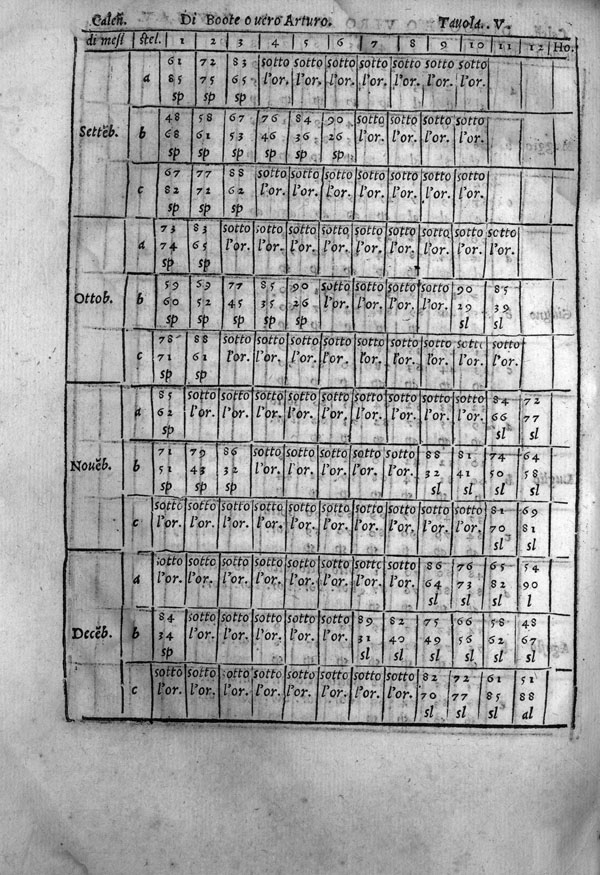 Caleñ. Di Boote overo Arturo. Tavola. V.
di mesi stel. 1 2 3 4 5 6 7 8 9 10 11 12 Ho.
61 72 83 sotto sotto sotto sotto sotto sotto sotto
a 85 75 65 l'or. l'or. l'or. l'or. l'or. l'or. l'or.
sp sp sp
48 58 67 76 84 90 sotto sotto sotto sotto
Settẽb. b 68 61 53 46 36 26 l'or. l'or. l'or. l'or.
sp sp sp sp sp sp
67 77 88 sotto sotto sotto sotto sotto sotto sotto
c 82 72 62 l'or. l'or. l'or. l'or. l'or. l'or. l'or.
sp sp sp
73 83 sotto sotto sotto sotto sotto sotto sotto sotto sotto
a 74 65 l'or. l'or. l'or. l'or. l'or. l'or. l'or. l'or. l'or.
sp sp
59 69 77 85 90 sotto sotto sotto sotto 90 85
Ottob. b 60 52 45 35 26 l'or. l'or. l'or. l'or. 29 39
sp sp sp sp sp sl sl
78 88 sotto sotto sotto sotto sotto sotto sotto sotto sotto
c 71 61 l'or. l'or. l'or. l'or. l'or. l'or. l'or. l'or. l'or.
sp sp
85 sotto sotto sotto sotto sotto sotto sotto sotto sotto 84 72
a 62 l'or. l'or. l'or. l'or. l'or. l'or. l'or. l'or. l'or. 66 77
sp sl sl
71 79 86 sotto sotto sotto sotto sotto 88 81 74 64
Novẽb. b 51 43 32 l'or. l'or. l'or. l'or. l'or. 32 41 50 58
sp sp sp sl sl sl sl
sotto sotto sotto sotto sotto sotto sotto sotto sotto sotto 81 69
c l'or. l'or. l'or. l'or. l'or. l'or. l'or. l'or. l'or. l'or. 70 81
sl sl
sotto sotto sotto sotto sotto sotto sotto sotto 86 76 65 54
a l'or. l'or. l'or. l'or. l'or. l'or. l'or. l'or. 64 73 82 90
sl sl sl l
84 sotto sotto sotto sotto sotto 89 82 75 66 58 48
Decẽb. b 34 l'or. l'or. l'or. l'or. l'or. 31 40 49 56 62 67
sp sl sl sl sl sl sl
sotto sotto sotto sotto sotto sotto sotto sotto 82 72 61 51
c l'or. l'or. l'or. l'or. l'or. l'or. l'or. l'or. 70 77 85 88
sl sl sl al